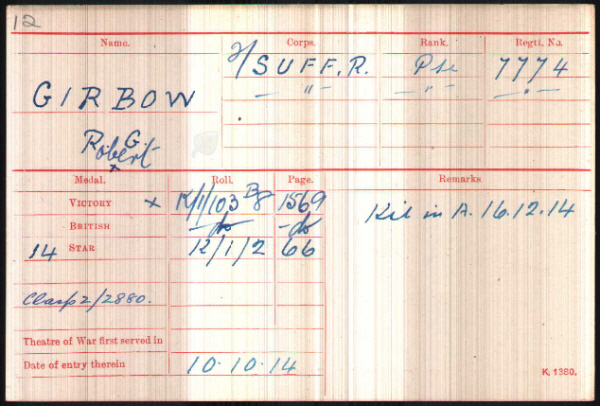 12
Name. Corps. Rank. Regtl. No.
2/SUFF.R. Pte 7774
GIRBOW — " — — " — — " —
Robert G.
x
Medal. Roll. Page. Remarks
VICTORY x K/1/103 B8 1569 Kil in A. 16.12.14
BRITISH —do —do
14 STAR K/1/2 66
Clasp 2/2880.
Theatre of War first served in
Date of entry therein 10.10.14
K. 1380.